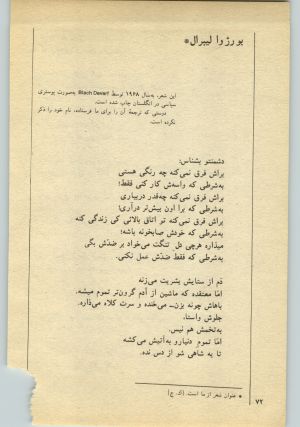 بورژوا لیبرال*
این شعر، به‌سال ۱۹۶۸ توسط Black Dwarf به‌صورت پوستری
سیاسی در انگلستان چاپ شده است.
دوستی که ترجمهٔ آن را برای ما فرستاده، نام خود را ذکر
نکرده است.
دشمنتو بشناس:
براش فرق نمی‌کنه چه رنگی هستی
به‌شرطی که واسه‌ش کار کنی فقط؛
براش فرق نمی‌کنه چه‌قدر درمیاری
به‌شرطی که برا اون بیش‌تر درآری؛
براش فرق نمی‌کنه تو اتاق بالائی کی زندگی کنه
به‌شرطی که خودش صابخونه باشه؛
میذاره هرچی دل تنگت می‌خواد بر ضدّش بگی
به‌شرطی که فقط ضدّش عمل نکنی.
دَم از ستایش بشریت می‌زنه
امّا معتقده که ماشین از آدم گرون‌تر تموم میشه.
باهاش چونه بزن... می‌خنده و سرت کلاه می‌ذاره.
جلوش واستا،
به‌تخمش هم نیس.
امّا تموم دنیارو به‌آتیش می‌کشه
تا یه شاهی شو از دس نده.
* عنوان شعر از ما است. (ک. ج)
۷۲